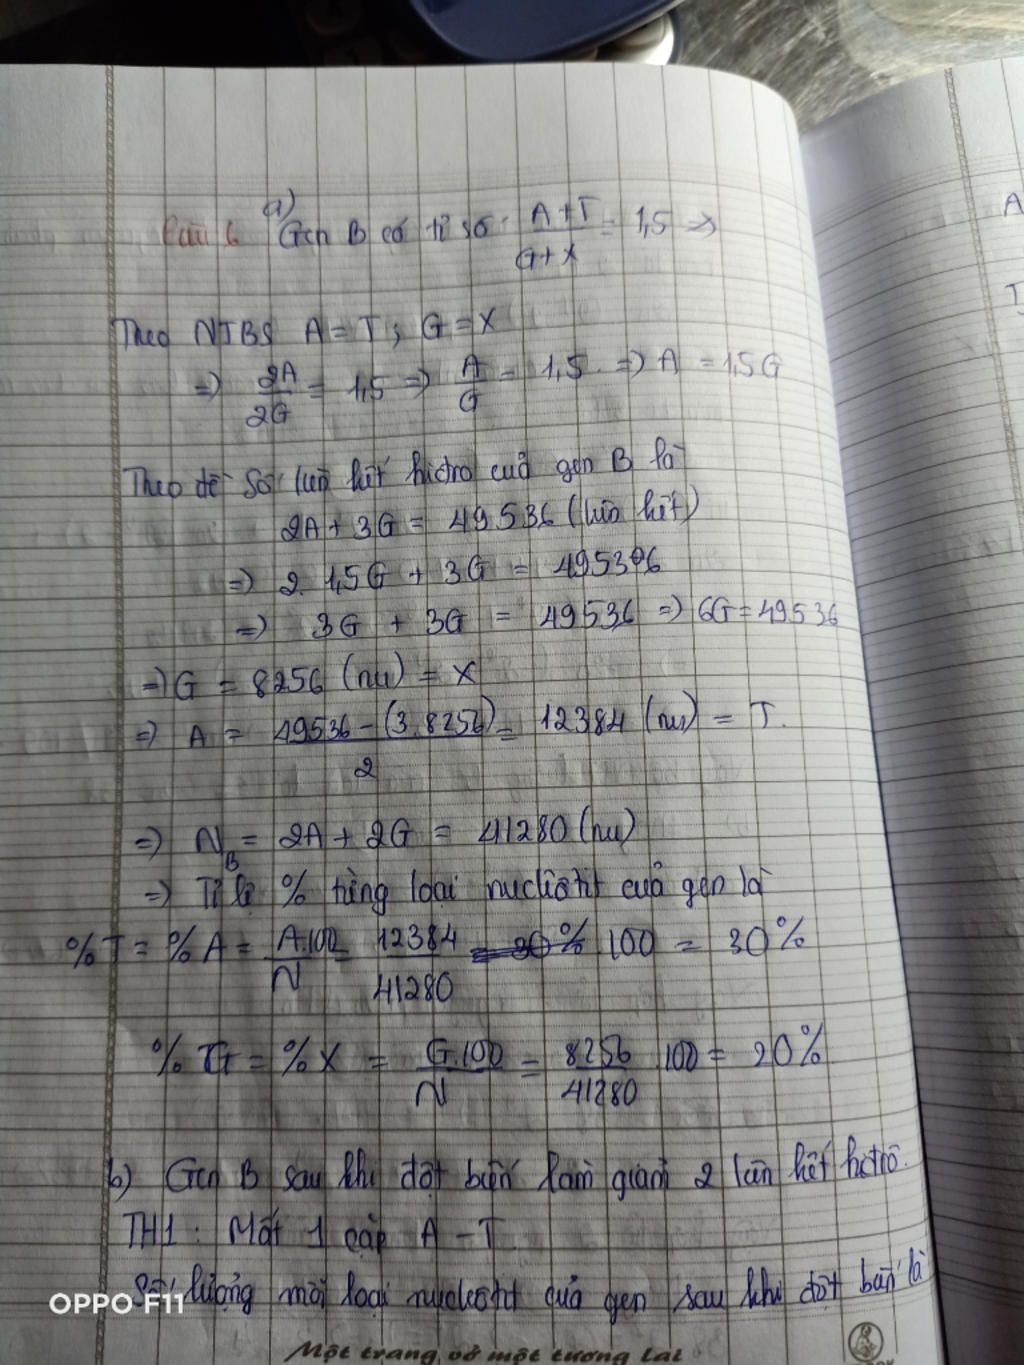 Câu 6 a) Gen B có tỉ số: A+T/G+X = 1,5 =>
Theo NTBS A = T ; G = X
=> 2A/2G = 1,5 => A/G = 1,5. => A = 1,5G
Theo đề số liên kết hiđro của gen B là
2A + 3G = 49536 (liên kết)
=> 2. 1,5G + 3G = 49536
=> 3G + 3G = 49536 => 6G = 49536
=> G = 8256 (nu) = X
=> A = 49536 - (3.8256)/2 = 12384 (nu) = T.
=> N_B = 2A + 2G = 41280 (nu)
=> Tỉ lệ % từng loại nuclêôtit của gen là
%T = %A = A.100/N = 12384/41280 . 100 = 30%
%G = %X = G.100/N = 8256/41280 . 100 = 20%
b) Gen B sau khi đột biến làm giảm 2 liên kết hiđrô.
TH1 : Mất 1 cặp A - T.
Số lượng mỗi loại nucleotit của gen sau khi đột biến là
OPPO F11
Một trang vở một tương lai
A